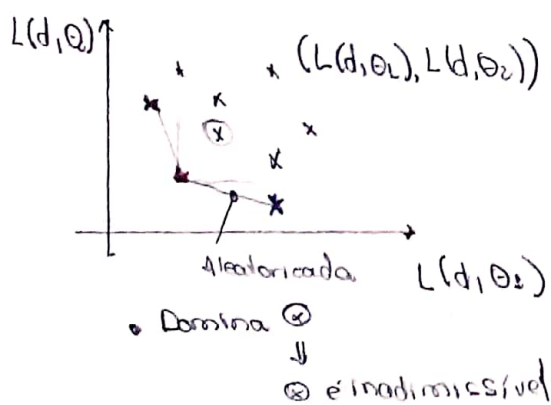 L(d,θ₂)
(L(d,θ₁), L(d,θ₂))
Aleatorizada
L(d,θ₁)
• Domina ⊗
⇓
⊗ é inadimissível